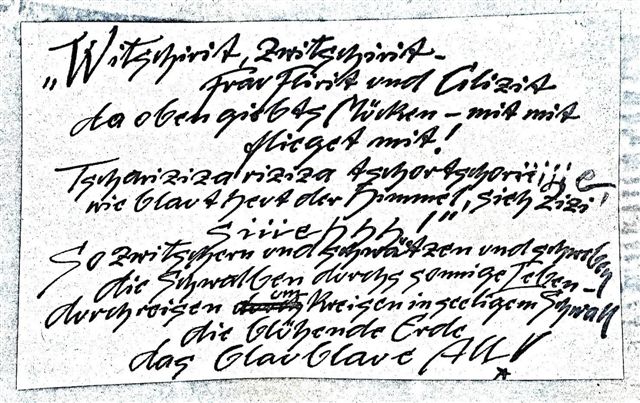 „Witschirit, zwitschirit –
Frau Flirit und Cilizit
da oben giebts Mücken – mit mit
flieget mit!
Tschariziza riziza tschortschoriiijje
wie blaut hert der Himmel, sieh zizi!
siiiehhh!“
So zwitschern und schwätzen und schweben
die Schwalben durchs sonnige Leben –
durchreisen um Kreisen in seeligem Schwall
die blühende Erde
das blaublaue All!